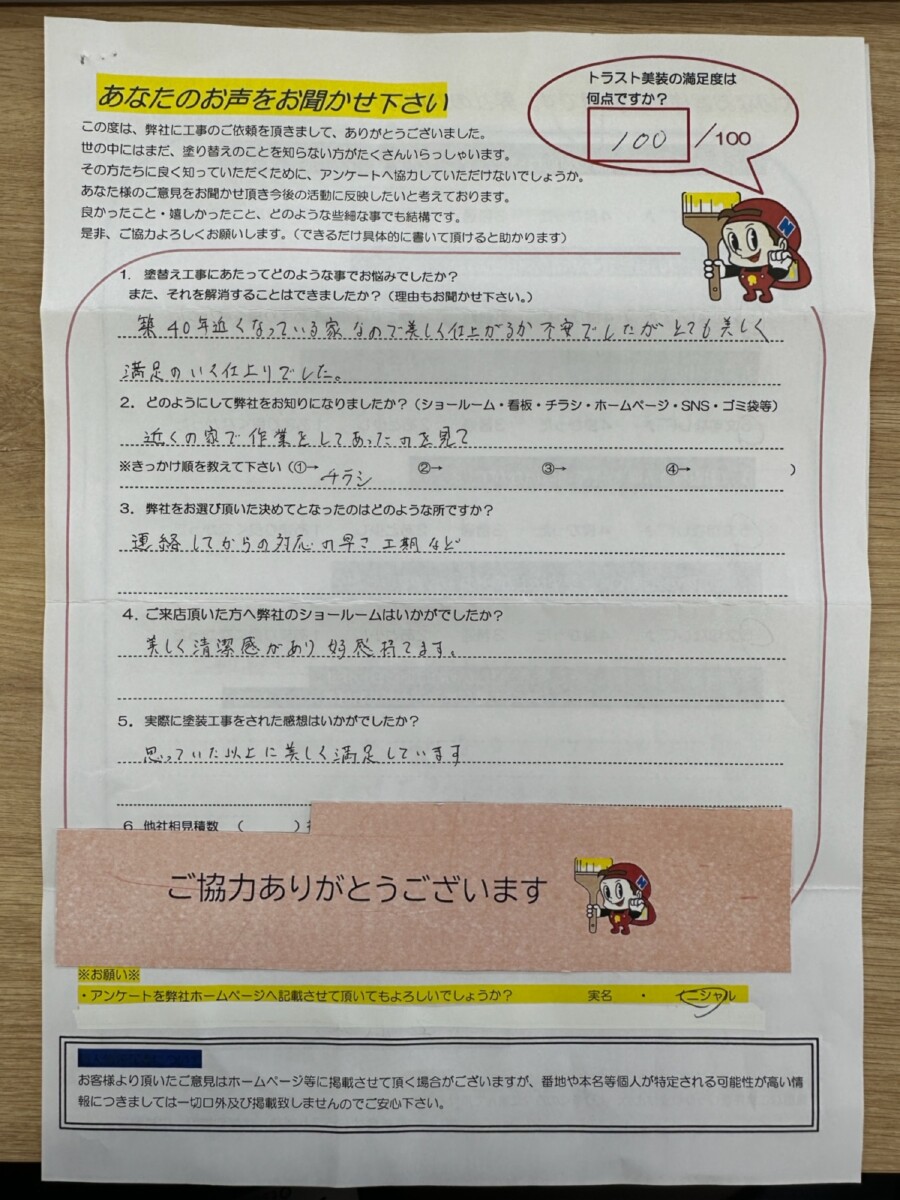 あなたのお声をお聞かせ下さい
トラスト美装の満足度は
何点ですか?
100/100
この度は、弊社に工事のご依頼を頂きまして、ありがとうございました。
世の中にはまだ、塗り替えのことを知らない方がたくさんいらっしゃいます。
その方たちに良く知っていただくために、アンケートへ協力していただけないでしょうか。
あなた様のご意見をお聞かせ頂き今後の活動に反映したいと考えております。
良かったこと・嬉しかったこと、どのような些細な事でも結構です。
是非、ご協力よろしくお願いします。(できるだけ具体的に書いて頂けると助かります)
1. 塗替え工事にあたってどのような事でお悩みでしたか?
また、それを解消することはできましたか?(理由もお聞かせ下さい。)
築40年近くなっている家なので美しく仕上がるか不安でしたがとても美しく
満足のいく仕上りでした。
2. どのようにして弊社をお知りになりましたか?(ショールーム・看板・チラシ・ホームページ・SNS・ゴミ袋等)
近くの家で作業をしてあったのを見て
※きっかけ順を教えて下さい(①→チラシ ②→ ③→ ④→ )
3. 弊社をお選び頂いた決めてとなったのはどのような所ですか?
連絡してからの対応の早さ 工期など
4. ご来店頂いた方へ弊社のショールームはいかがでしたか?
美しく清潔感があり好感持てます。
5. 実際に塗装工事をされた感想はいかがでしたか?
思っていた以上に美しく満足しています
6 他社相見積数 ( )
ご協力ありがとうございます
※お願い※
・アンケートを弊社ホームページへ記載させて頂いてもよろしいでしょうか? 実名 ・ イニシャル
お客様より頂いたご意見はホームページ等に掲載させて頂く場合がございますが、番地や本名等個人が特定される可能性が高い情
報につきましては一切口外及び掲載致しませんのでご安心下さい。